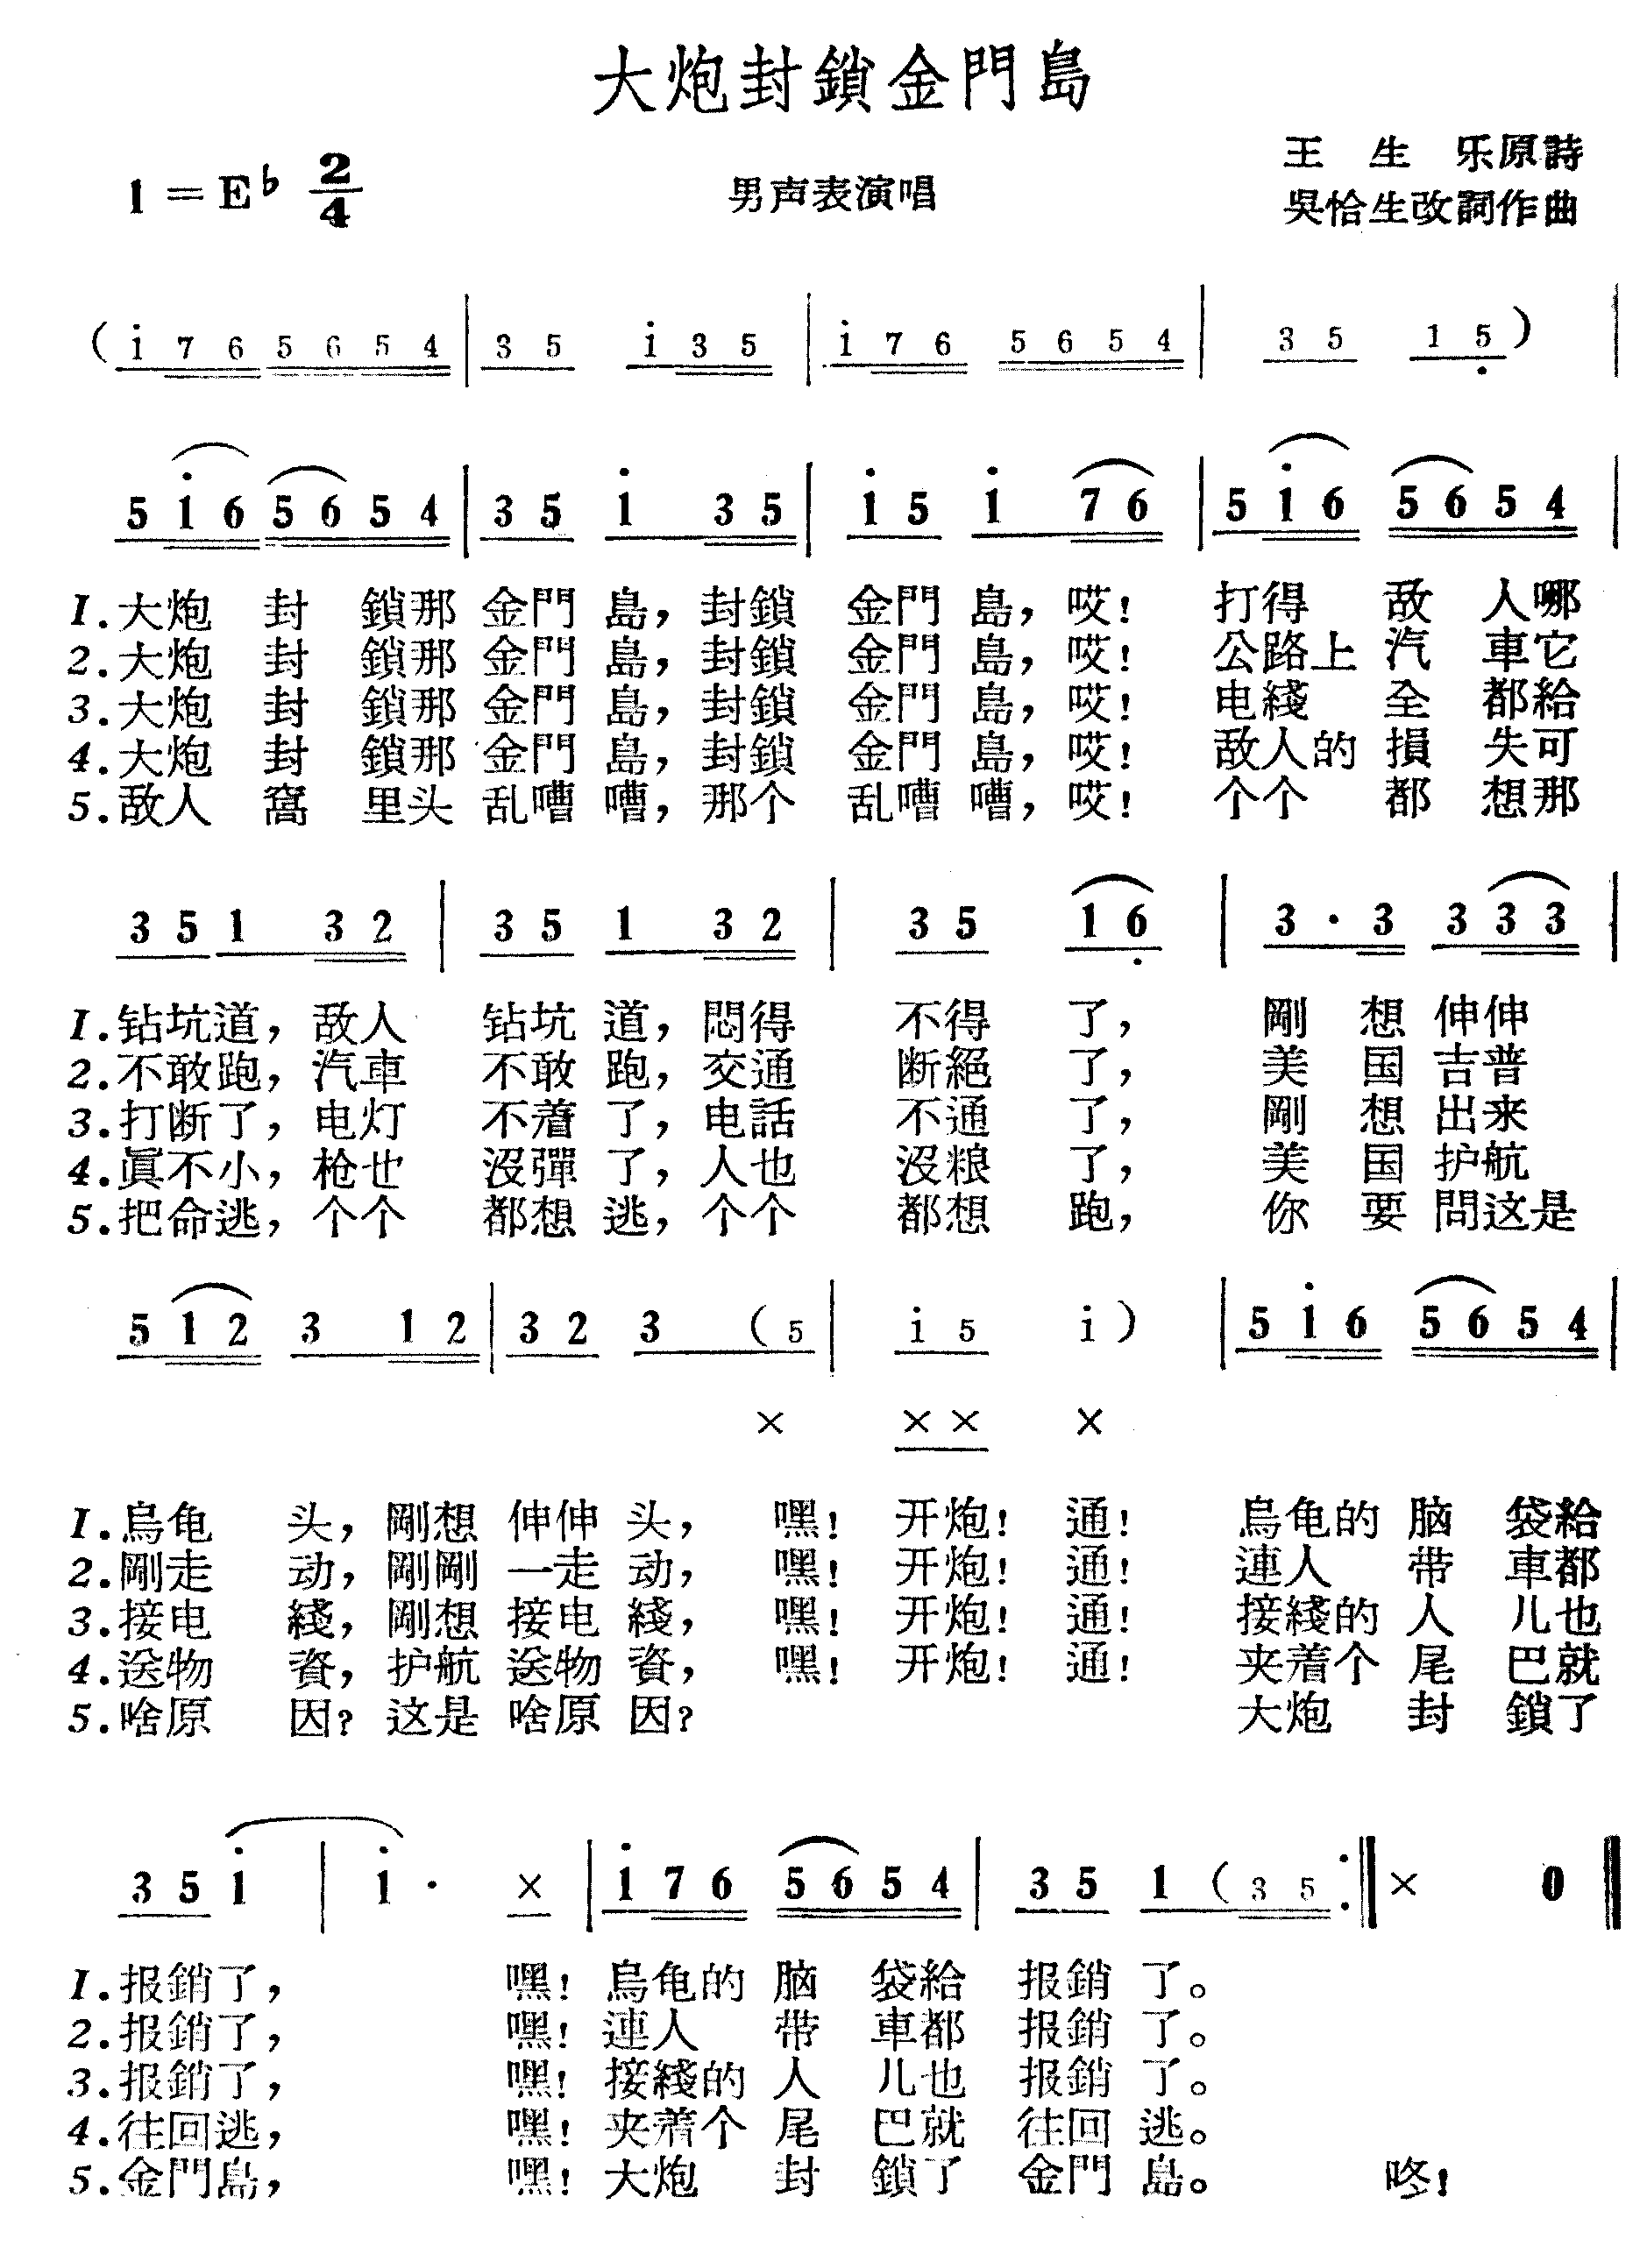 大炮封鎖金門島
王 生 乐原詩
1＝E♭ 2/4 男声表演唱 吳恰生改詞作曲
( i 7 6 5 6 5 4 | 3 5 i 3 5 | i 7 6 5 6 5 4 | 3 5 1 5 ) |
5 i 6 5 6 5 4 | 3 5 i 3 5 | i 5 i 7 6 | 5 i 6 5 6 5 4 |
1.大炮 封 鎖那 金門 島，封鎖 金門 島，哎！ 打得 敌 人哪
2.大炮 封 鎖那 金門 島，封鎖 金門 島，哎！ 公路上 汽 車它
3.大炮 封 鎖那 金門 島，封鎖 金門 島，哎！ 电綫 全 都給
4.大炮 封 鎖那 金門 島，封鎖 金門 島，哎！ 敌人的 損 失可
5.敌人 窩 里头 乱嘈 嘈，那个 乱嘈 嘈，哎！ 个个 都 想那
3 5 1 3 2 | 3 5 1 3 2 | 3 5 1 6 | 3 · 3 3 3 3 |
1.钻坑道，敌人 钻坑 道，悶得 不得 了， 剛 想 伸伸
2.不敢跑，汽車 不敢 跑，交通 断絕 了， 美 国 吉普
3.打断了，电灯 不着 了，电話 不通 了， 剛 想 出来
4.眞不小，枪也 沒彈 了，人也 沒粮 了， 美 国 护航
5.把命逃，个个 都想 逃，个个 都想 跑， 你 要 問这是
5 1 2 3 1 2 | 3 2 3 ( 5 | i 5 i ) | 5 i 6 5 6 5 4 |
× × × ×
1.烏龟 头，剛想 伸伸 头， 嘿！ 开炮！ 通！ 烏龟的 脑 袋給
2.剛走 动，剛剛 一走 动， 嘿！ 开炮！ 通！ 連人 带 車都
3.接电 綫，剛想 接电 綫， 嘿！ 开炮！ 通！ 接綫的 人 儿也
4.送物 資，护航 送物 資， 嘿！ 开炮！ 通！ 夹着个 尾 巴就
5.啥原 因？这是 啥原 因？ 大炮 封 鎖了
3 5 i | i · × | i 7 6 5 6 5 4 | 3 5 1 ( 3 5 :| × 0 ‖
1.报銷了， 嘿！烏龟的 脑 袋給 报銷 了。
2.报銷了， 嘿！連人 带 車都 报銷 了。
3.报銷了， 嘿！接綫的 人 儿也 报銷 了。
4.往回逃， 嘿！夹着个 尾 巴就 往回 逃。
5.金門島， 嘿！大炮 封 鎖了 金門 島。 咚！